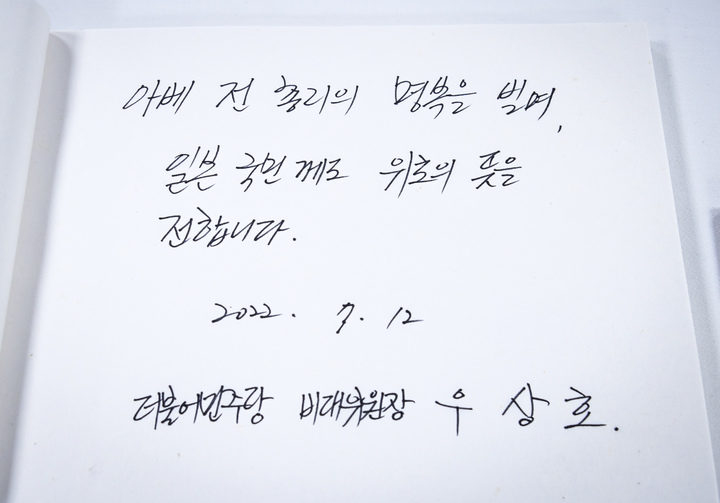 아베 전 총리의 명복을 빌며,
일본 국민께도 위로의 뜻을
전합니다.
2022. 7. 12
더불어민주당 비대위원장 우상호.